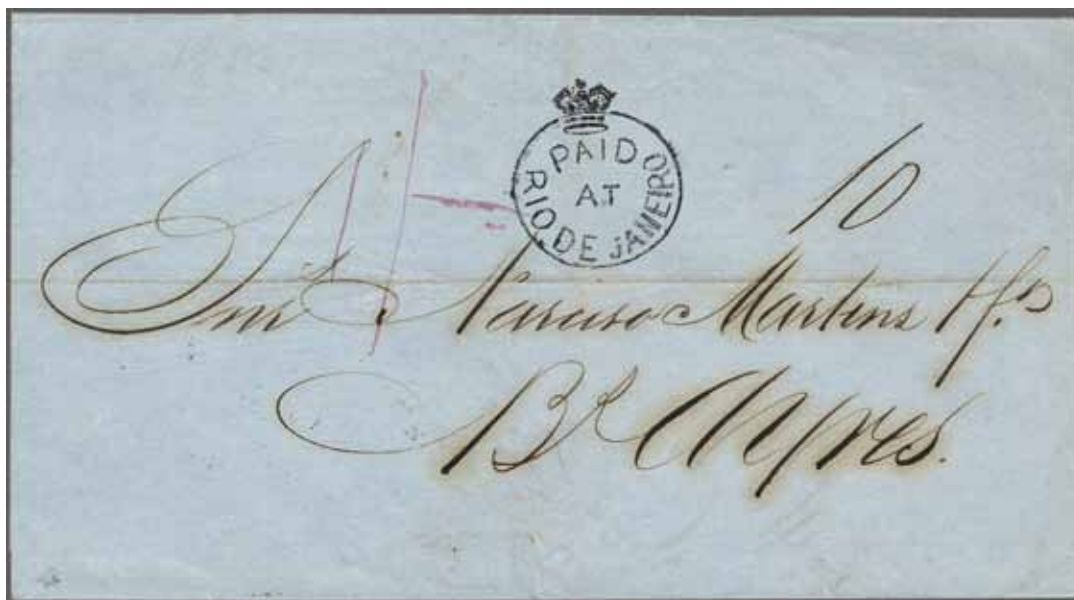 PAID
AT
RIO.DE JANEIRO
10
Narciso Martins
Bs Ayres.